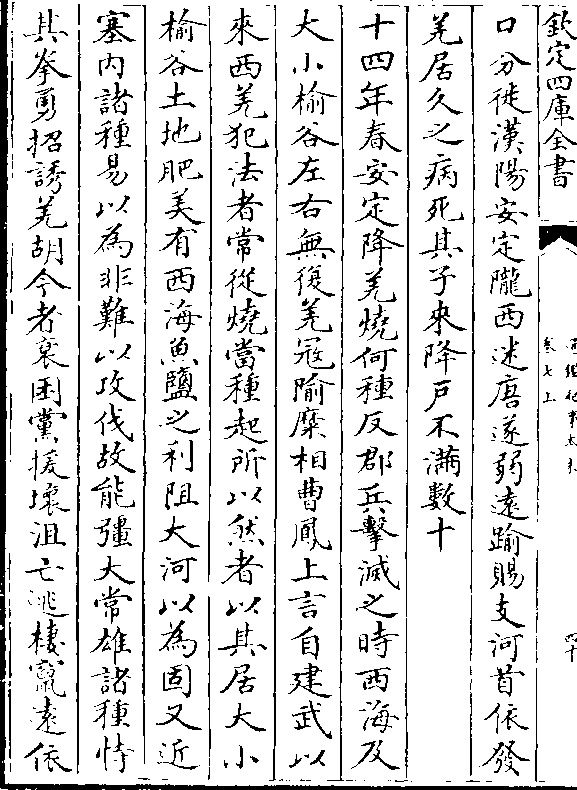 欽定四庫全書
卷七上
四十
口分徙漢陽安定隴西迷唐遂弱遠踰賜支河首依發
羌居久之病死其子來降戶不滿數十
十四年春安定降羌燒何種反郡兵擊滅之時西海及
大小榆谷左右無復羌寇隃糜相曹鳳上言自建武以
來西羌犯法者常從燒當種起所以然者以其居大小
榆谷土地肥美有西海魚鹽之利阻大河以為固又近
塞内諸種易以為非難以攻伐故能彊大常雄諸種恃
其拳勇招誘羌胡今者衰困黨援壞沮亡逃棲竄遠依